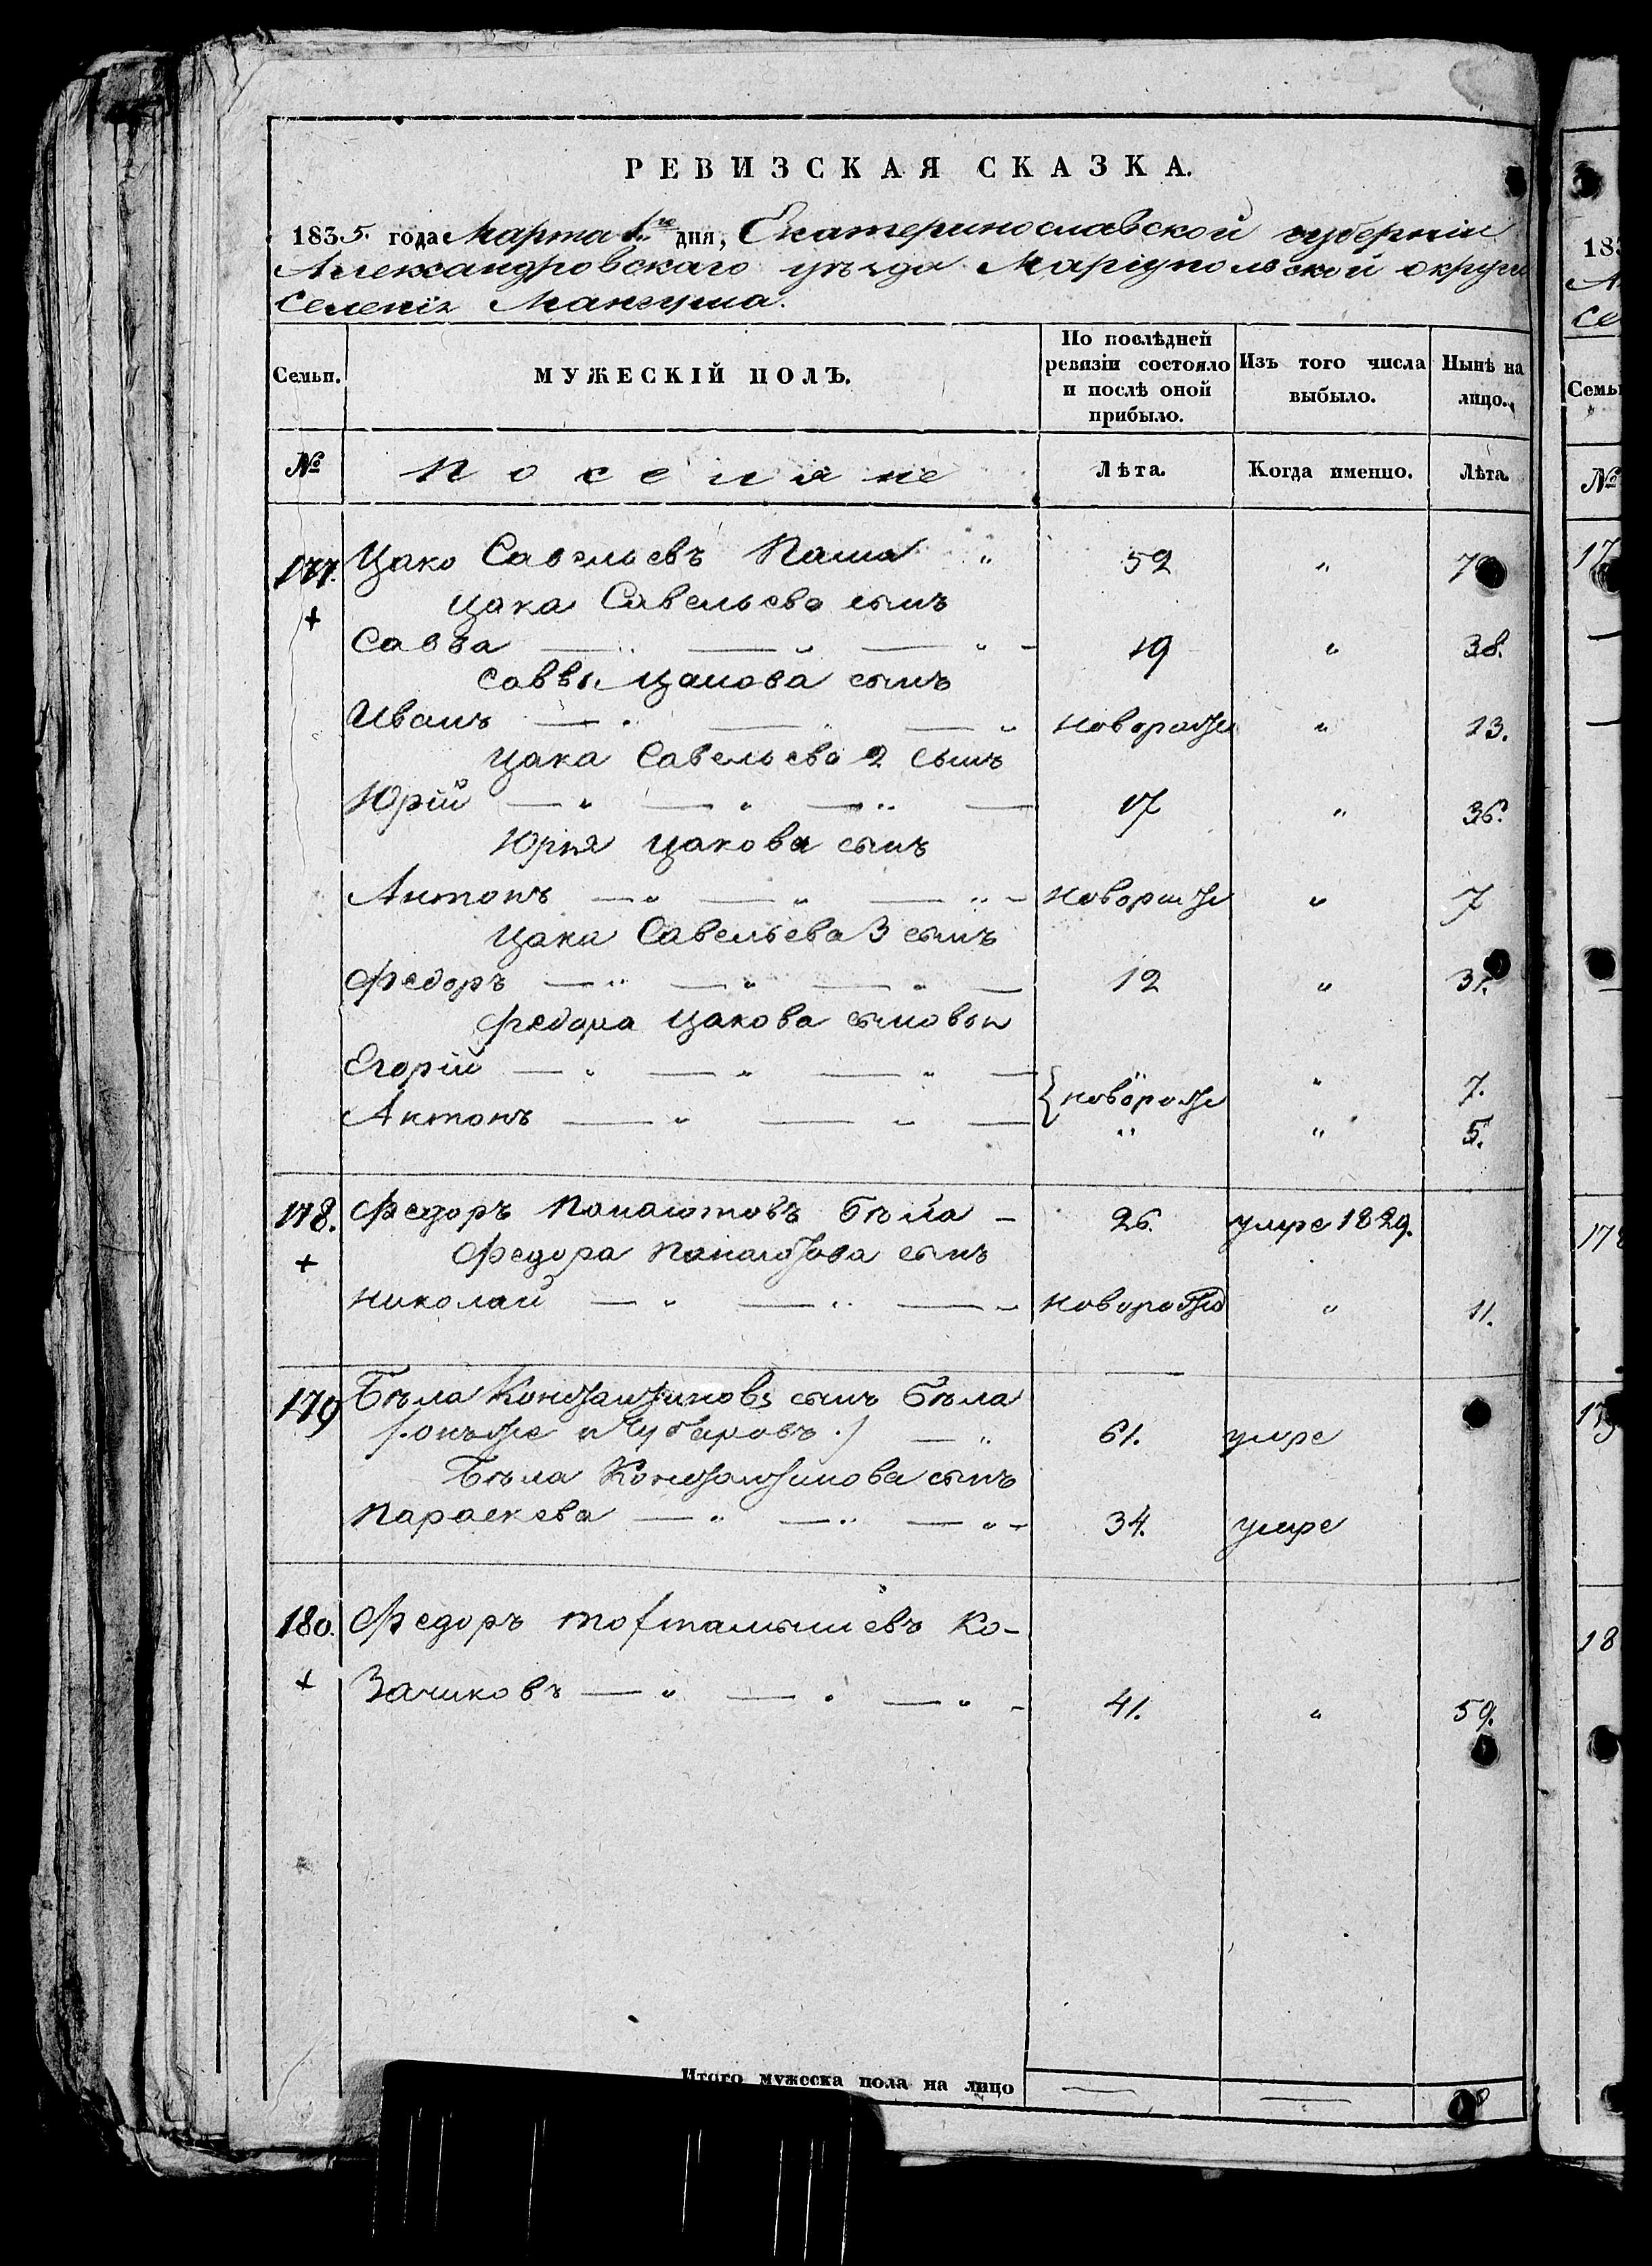 РЕВИЗСКАЯ СКАЗКА.
1835. года Марта 1го дня, Екатеринославской губерніи
Александровскаго уѣзда Маріупольской округи
Селенія Мангуша.
Семьи.
МУЖЕСКІЙ ПОЛЪ.
По послѣдней ревизіи состояло и послѣ оной прибыло.
Изъ того числа выбыло.
Нынѣ на лицо.
№ Поселяне Лѣта. Когда именно. Лѣта.
177. Цако Савельевъ Паша " 52 "
+ Цака Савельева сынъ
Савва — " — " — " - 19 " 38.
Саввы Цакова сынъ
Иванъ — " — " — " новорожде " 13.
Цака Савельева 2 сынъ
Юрій — " — " — " — 17 " 36.
Юрія Цакова сынъ
Антонъ — " — " — " - новорожде " 7
Цака Савельева 3 сынъ
Федоръ — " — " — " — 12 "
Федора Цакова сыновья
Егорій — " — " — " — { новорожде " 7.
Антонъ — " — " — " " 5.
178. Федоръ Панаіотовъ Бѣла — 26. умре 1829.
+ Федора Панаіотова сынъ
Николай — " — " — " новорожд " 11.
179 Бѣла Константиновъ сынъ Бѣла
/. онъ же и Чубаровъ ./ — " 61. умре
Бѣла Константинова сынъ
Параскева — " — " — " - 34. умре
180. Федоръ Тохтамышевъ Ко-
+ Зачиковъ — " — " — " - 41. " 59.
Итого мужеска пола на лицо — —
183
А
Се
Семьи
№
17
178
179
18